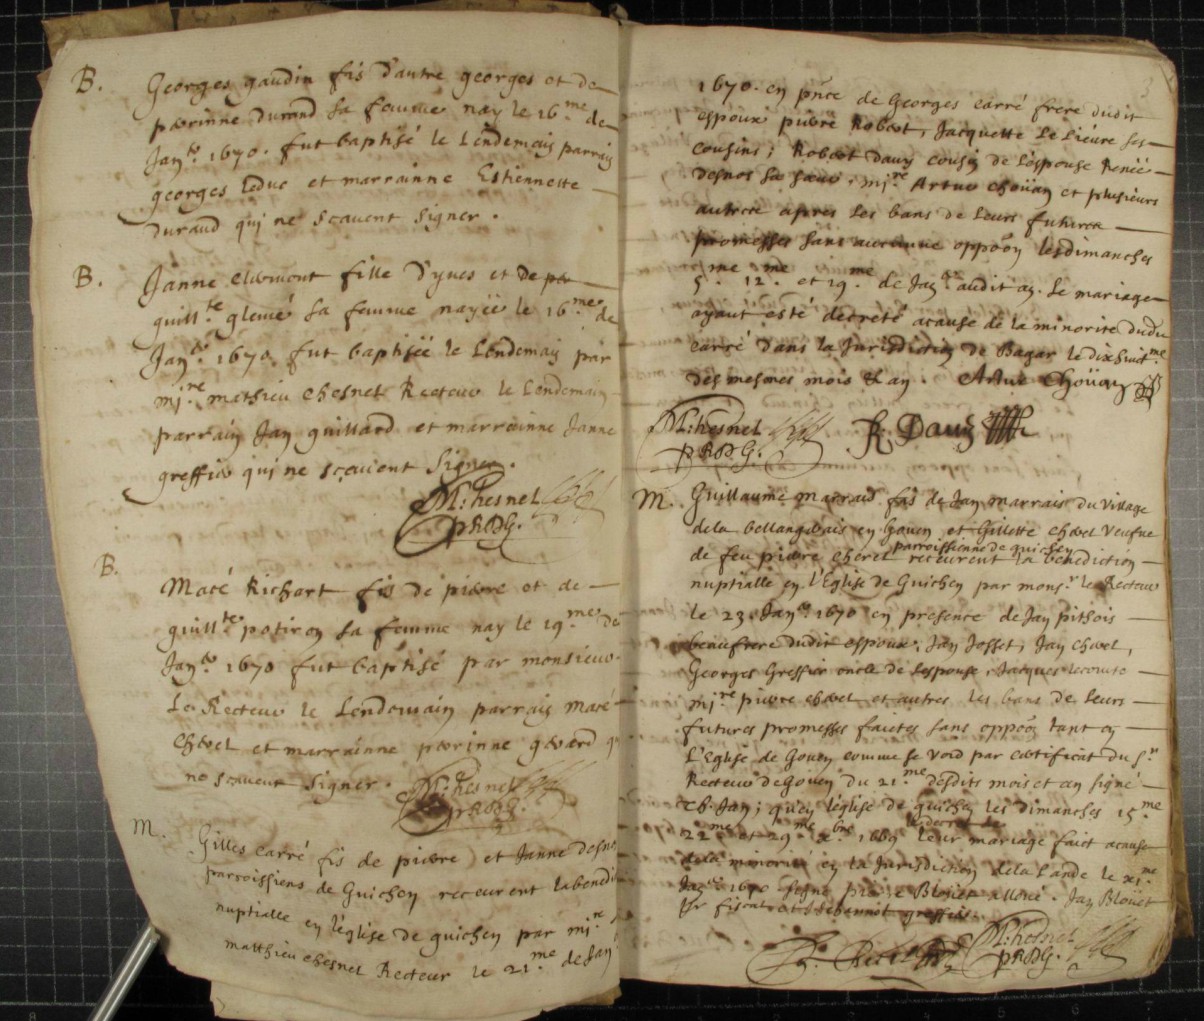 B. Georges gaudin fis d'autre georges et de
perinne durand sa femme nay le 16.me de
Janr. 1670. fut baptisé le Lendemain parrain
georges Leduc et marrainne Estiennette
durand qui ne scavent signer.
B. Janne clermont fille d'yves et de
guillte. glemé sa femme nayée le 16.me de
Janr. 1670. fut baptisée le Lendemain par
mire. mathieu chesnel Recteur le Lendemain
parrain Jan guillard et marrainne Janne
greffier qui ne scavent Signer.
M: hesnel
PRDG.
B.
Maté Richart fis de pierre et de
guillte potiron sa femme nay le 19.me de
Janr. 1670 fut baptisé par monsieur
Le Recteur le Lendemain parrain maté
chevel et marrainne perinne
ne scavent Signer. M: hesnel
PRDG.
M.
Gilles carré fis de pierre et Janne desnos
parroissiens de Guichen receurent la bendi
nuptialle en l'église de guichen par mire
matthieu chesnel Recteur le 21.me de Jan
1670. en pnce de Georges carré frere dudit
espoux pierre Robert, Jacquette Le Lieure ses
cousins; Robert Dauy cousin de l'espouse Renée
desnos sa soeur, mire Artur Choüan et plusieurs
autres apres les bans de leurs futures
promesses sans aucunne oppoon les dimanches
5.me 12.me et 19.me de Janr audit an. Le mariage
ayant esté décreté acause de la minorité dudit
carré dans la Jurisdiction de Bagar le dixhuictme
des mesmes mois & an. Artur Choüan
M: hesnel R: Dauy
PRDG.
M. Guillaume marrais fis de Jan marrais du village
de la bellangerais en Gouen et Gillette chevel veufue
parroissienne de guichen
de feu pierre cherel receurent la bénédiction
nuptialle en l'Eglise de Guichen par monsr le Recteur
le 23 Janr 1670 en presence de Jan pithois
beaufrere dudit espoux, Jan Josset, Jan chevel,
Georges Greffier oncle de Lespouse, Jacques lecomte
mire pierre chevel et autres les bans de leurs
futures promesses faictes sans oppoon tant en
L'Eglise de Gouen comme se void par certificat du Sr
Recteur de Gouen du 21.me desdits mois et an signé
Jan; qu'en léglise de guichen les dimanches 15.me
22.me et 29.me xbre 1669 leur mariage faict acause
de la minorité en la Jurisdiction de la Lande le
Janr 1670 signé pierre Blouet alloué. Jan Blouet
pr fiscal et greffier.
M: hesnel
PRDG.